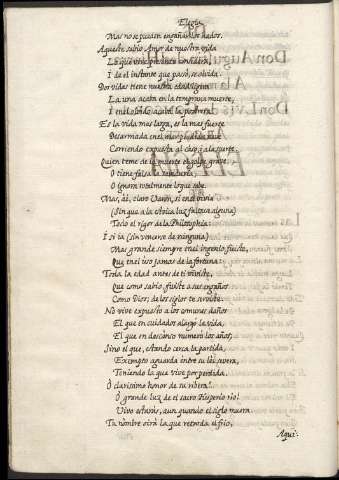 Elegia
Mas no se pueden engañar los hados.
Aquesta sabio Amor de nuestra vida
La que viene presente considera,
I da el instante que pasò, se olvida.
Dos vidas tiene nuestra edad ligera
La una acaba en la temprana muerte,
I en el olvido acaba la postrera
Es la vida mas larga, es la mas fuerte
Desarmada en el
Corriendo expuesta al caso, i a la suerte
Quien teme de la muerte el golpe grave,
O tiene falsa la sabiduria,
O ignora totalmente lo que sabe.
Mas, ai, claro Varòn, si en ti vivia
(Sin que a la Atica luz faltase alguna)
Todo el rigor de la Philosophia:
I si tu (sin vencerse de ninguna)
Mas grande siempre en el ingenio fuiste,
Que en el uso jamas de la fortuna:
Toda la edad antes de ti viviste,
Que como sabio, fuiste a sus engaños
Como Dios; de los siglos te serviste.
No vive expuesto a los comunes daños
El que en cuidados alargò la vida,
El que en descanso numerò los años;
Sino el que, estando cerca la partida,
Eximpto aguarda entre su luz severa,
Teniendo la que vive por perdida.
O clarissimo honor de su ribera!
O grande luz de el sacro Hisperio rio!
Vivo estaràs, aun quando el siglo muera
Tu nombre oirà la que retrocede el frio,
Aqui